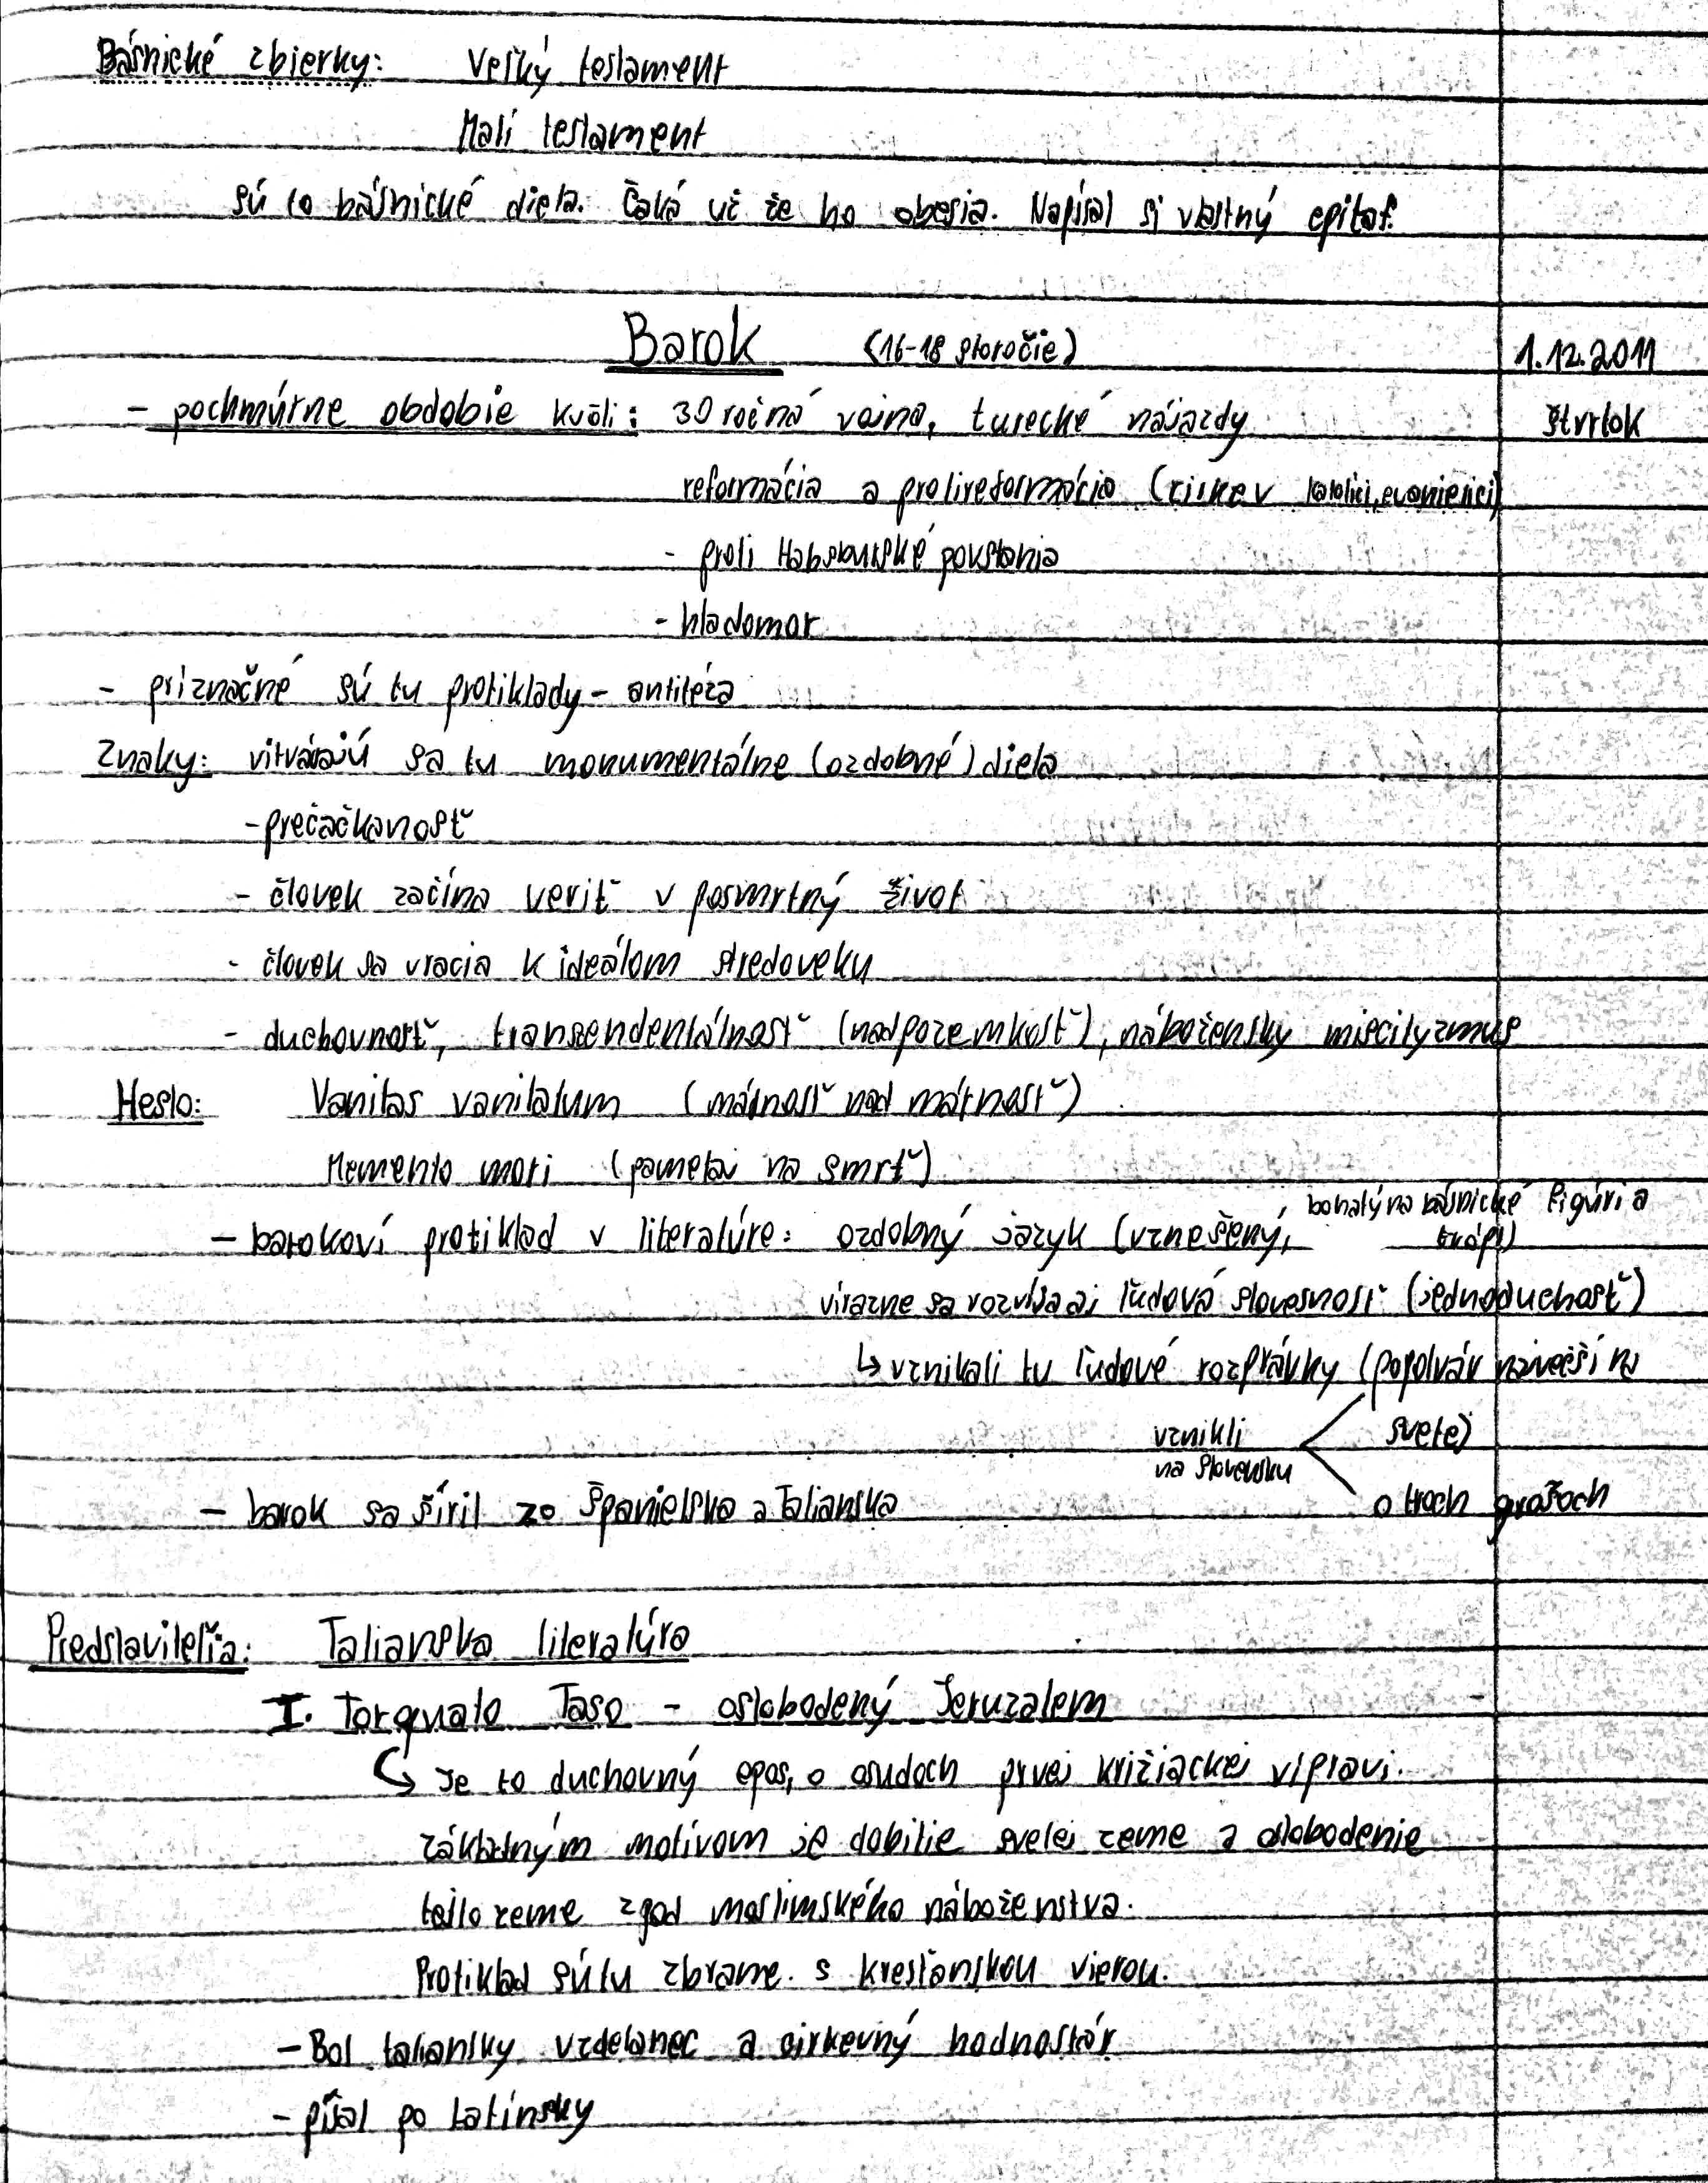 Básnické zbierky: Veľký testament
Malí testament
sú to básnické diela. Čaká už že ho obesia. Napísal si vlastný epitaf.
Barok (16-18 storočie) 1.12.2011
- pochmúrne obdobie kvôli: 30 ročná vojna, turecké nájazdy štvrtok
reformácia a protireformácia (cirkev katolíci, evanjelici)
- proti Habsburské povstania
- hladomor
- príznačné sú tu protiklady - antitéza
Znaky: vitvárajú sa tu monumentálne (ozdobné) diela
- prečačkanosť
- človek začína veriť v posmrtný život
- človek sa vracia k ideálom stredoveku
- duchovnosť, transendentálnosť (nadpozemkosť), náboženský miscityzmus
Heslo: Vanitas vanitatum (márnosť nad márnosť)
Memento mori (pametaj na smrť)
- barokoví protiklad v literatúre: ozdobný jazyk (vznešený, bohatý na básnické figúri a trópi)
virazne sa rozvíja aj ľudová slovesnosť (jednoduchosť)
↳ vznikali tu ľudové rozprávky (popolvár največší na
vznikli svete)
na Slovensku
- barok sa šíril zo Španielska a Talianska o troch grošoch
Predstavitelia: Talianska literatúra
I. Torquato Taso - oslobodený Jeruzalem
↳ Je to duchovný epos, o osudoch prvej križiackej vípravi.
základným motívom je dobitie svetej zeme a oslobodenie
tejto zeme zpod moslimského náboženstva.
Protiklad sú tu zbrame s kresťanskou vierou.
- Bol taliansky vzdelanec a cirkevný hodnostár
- písal po latinsky